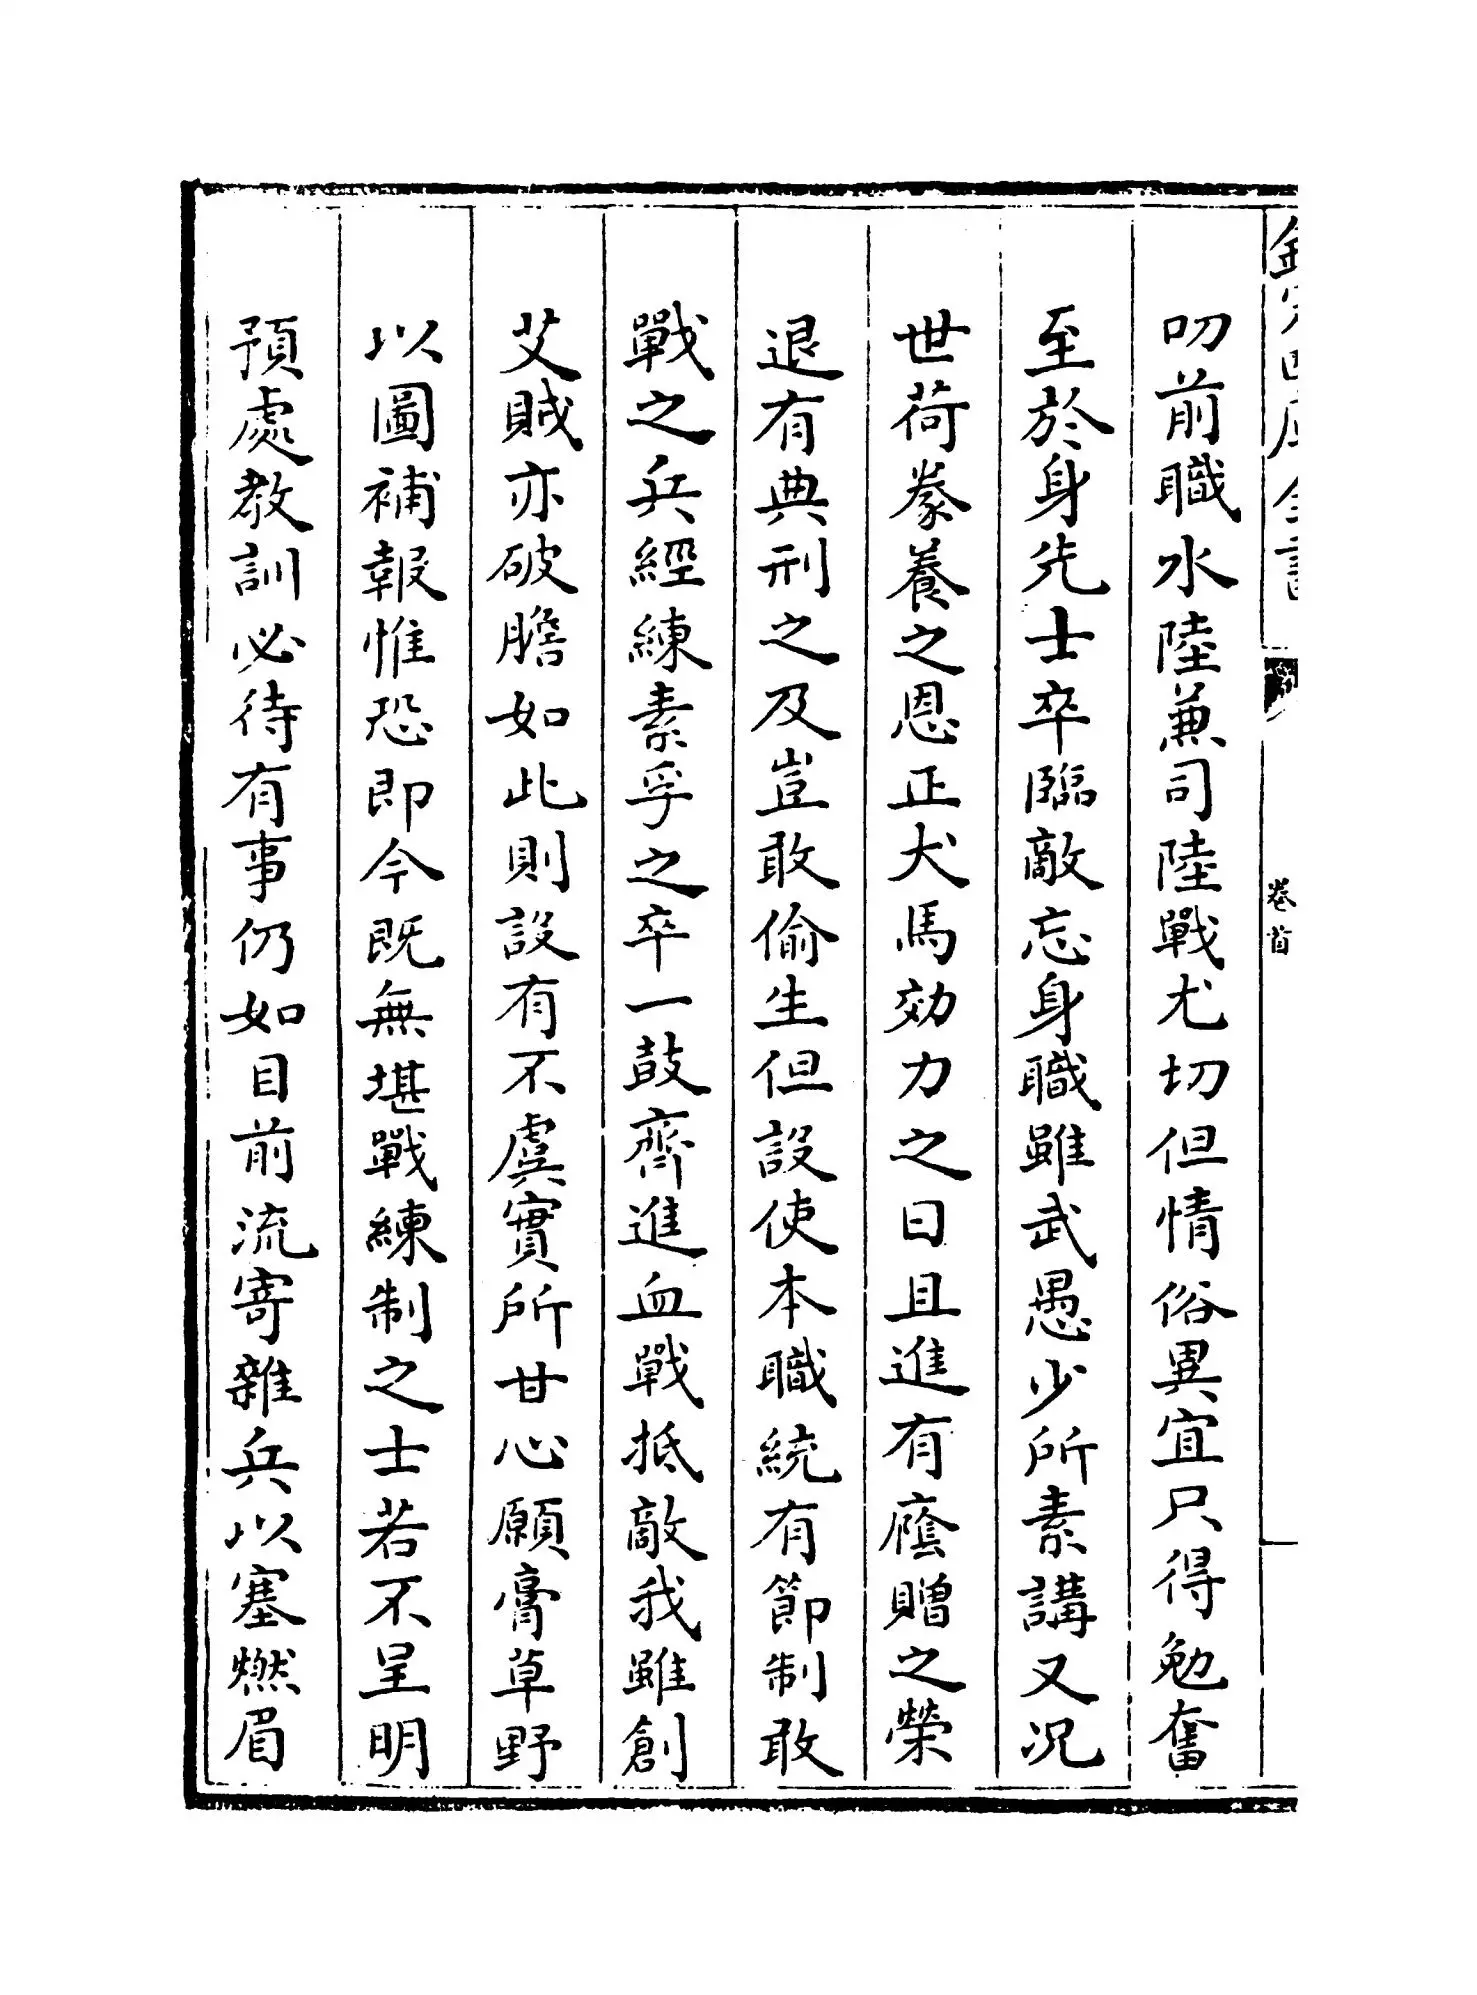 欽定四庫全書
卷首
叨前職水陸兼司陸戰尤切但情俗異宜只得勉奮
至於身先士卒臨敵忘身職雖武愚少所素講又况
世荷豢養之恩正犬馬効力之日且進有廕贈之榮
退有典刑之及豈敢偷生但設使本職統有節制敢
戰之兵經練素孚之卒一鼓齊進血戰抵敵我雖創
艾賊亦破膽如此則設有不虞實所甘心願膏草野
以圖補報惟恐即今既無堪戰練制之士若不呈明
預處教訓必待有事仍如目前流寄雜兵以塞燃眉